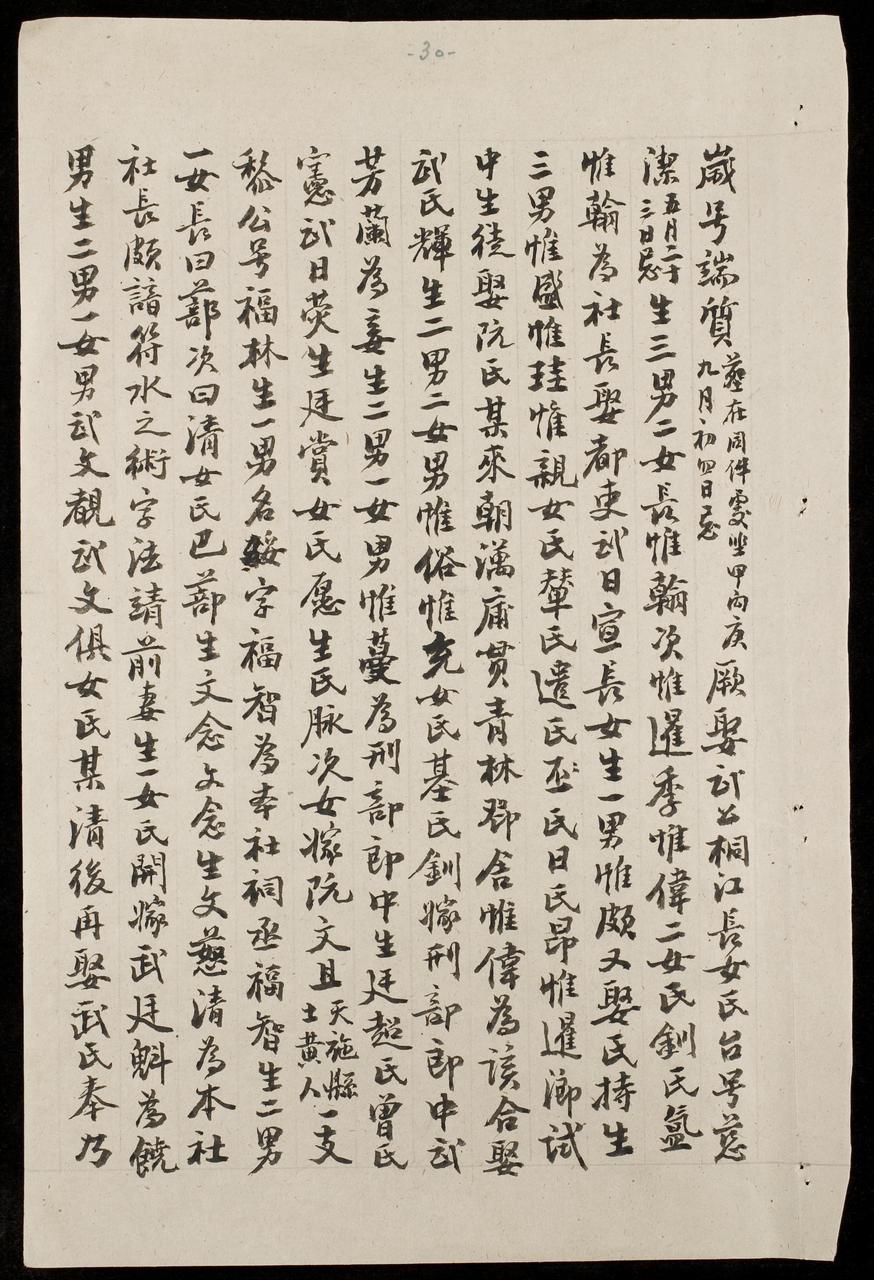 -30-
歲号端質葬在同伴處坐甲向庚九月初四日忌厥娶武公桐江長女氏台号慈
潔五月二十三日忌生三男二女長惟翰次惟暹季惟偉二女氏釧氏氲
惟翰為社長娶都吏武日宣長女生一男惟頗又娶氏持生
三男惟盛惟珪惟親女氏輦氏遣氏丕氏日氏昂惟暹鄉試
中生徒娶阮氏某來朝滿庸貫青林鄧舍惟偉為該合娶
武氏輝生二男二女男惟俗惟充女氏基氏釧嫁刑部郎中武
芳蘭為妾生二男一女男惟蔓為刑部郎中生廷趂氏曾氏
憲武日荧生廷賞女氏愿生氏脉次女嫁阮文且天施縣土黄人一支
黎公号福林生一男名綏字福智為本社祠丞福智生二男
一女長曰蔀次曰清女氏巴蔀生文念文念生文慈清為本社
社長頗諳符水之術字法請前妻生一女氏開嫁武廷斛為饒
男生二男一女男武文觀武文俱女氏某清後再娶武氏奉乃